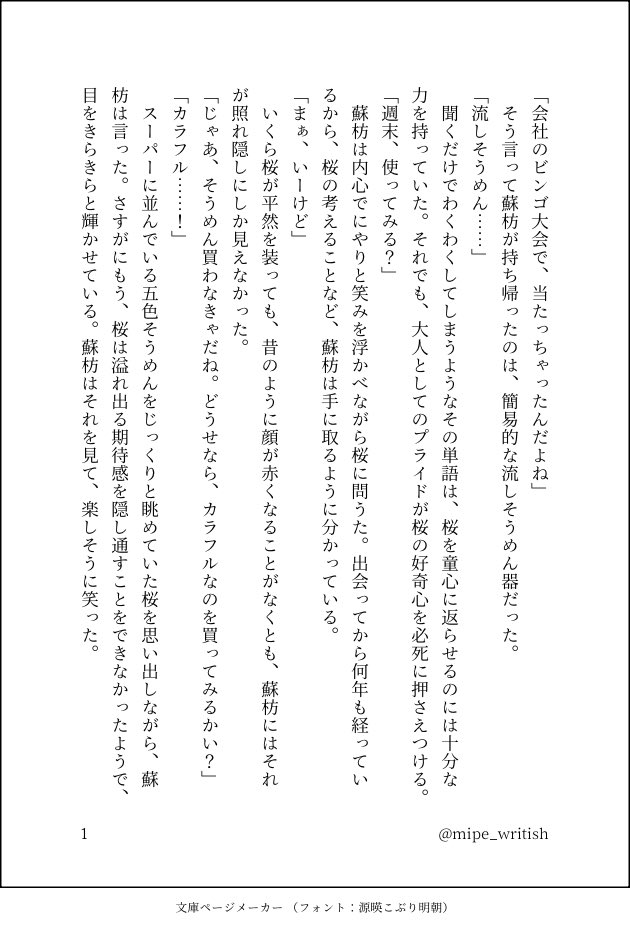 「会社のビンゴ大会で、当たっちゃったんだよね」
　そう言って蘇枋が持ち帰ったのは、簡易的な流しそうめん器だった。
「流しそうめん……」
　聞くだけでわくわくしてしまうようなその単語は、桜を童心に返らせるのには十分な
力を持っていた。それでも、大人としてのプライドが桜の好奇心を必死に押さえつける。
「週末、使ってみる？」
　蘇枋は内心でにやりと笑みを浮かべながら桜に問うた。出会ってから何年も経ってい
るから、桜の考えることなど、蘇枋は手に取るように分かっている。
「まぁ、いーけど」
　いくら桜が平然を装っても、昔のように顔が赤くなることがなくとも、蘇枋にはそれ
が照れ隠しにしか見えなかった。
「じゃあ、そうめん買わなきゃだね。どうせなら、カラフルなのを買ってみるかい？」
「カラフル……！」
　スーパーに並んでいる五色そうめんをじっくりと眺めていた桜を思い出しながら、蘇
枋は言った。さすがにもう、桜は溢れ出る期待感を隠し通すことをできなかったようで、
目をきらきらと輝かせている。蘇枋はそれを見て、楽しそうに笑った。
1
@mipe_writish
文庫ページメーカー （フォント：源暎こぶり明朝）